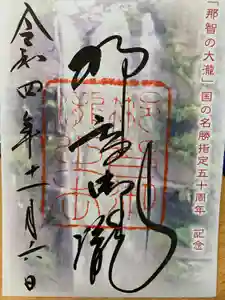 「那智の大瀧」国の名勝指定五十周年 記念
那智御瀧
令和四年十一月六日